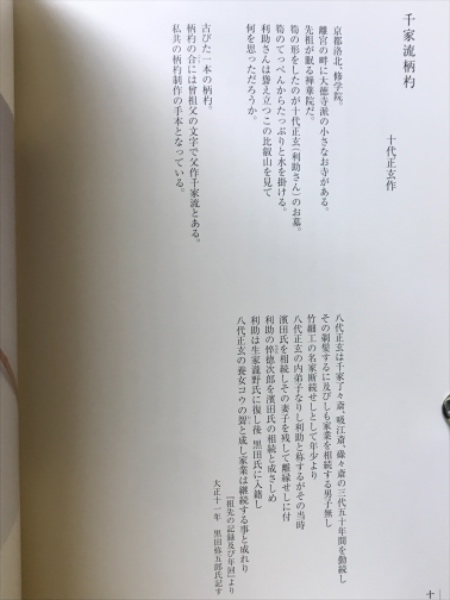 千家流柄杓
十代正玄作
京都洛北、修学院。
離宮の畔に大徳寺派の小さなお寺がある。
先祖が眠る禅華院だ。
筍の形をしたのが十代正玄(利助さん)のお墓。
筍のてっぺんからたっぷりと水を掛ける。
利助さんは聳え立つこの比叡山を見て
何を思っただろうか。
古びた一本の柄杓。
柄杓の合には曾祖父の文字で父作千家流とある。
私共の柄杓制作の手本となっている。
八代正玄は千家了々斎、吸江斎、碌々斎の三代五十年間を勤続し
その剃髪するに及びしも家業を相続する男子無し
竹細工の名家断続せしとして年少より
八代正玄の内弟子なりし利助と称するがその当時
濱田氏を相続しその妻子を残して離縁せしに付
利助の悴徳次郎を濱田氏の相続と成さしめ
利助は生家瀧野氏に復し後 黒田氏に入籍し
八代正玄の養女コウの賀と成し家業は継続する事と成れり
「祖先の記録及び年回」より
大正十一年 黒田弥五郎氏記す
十